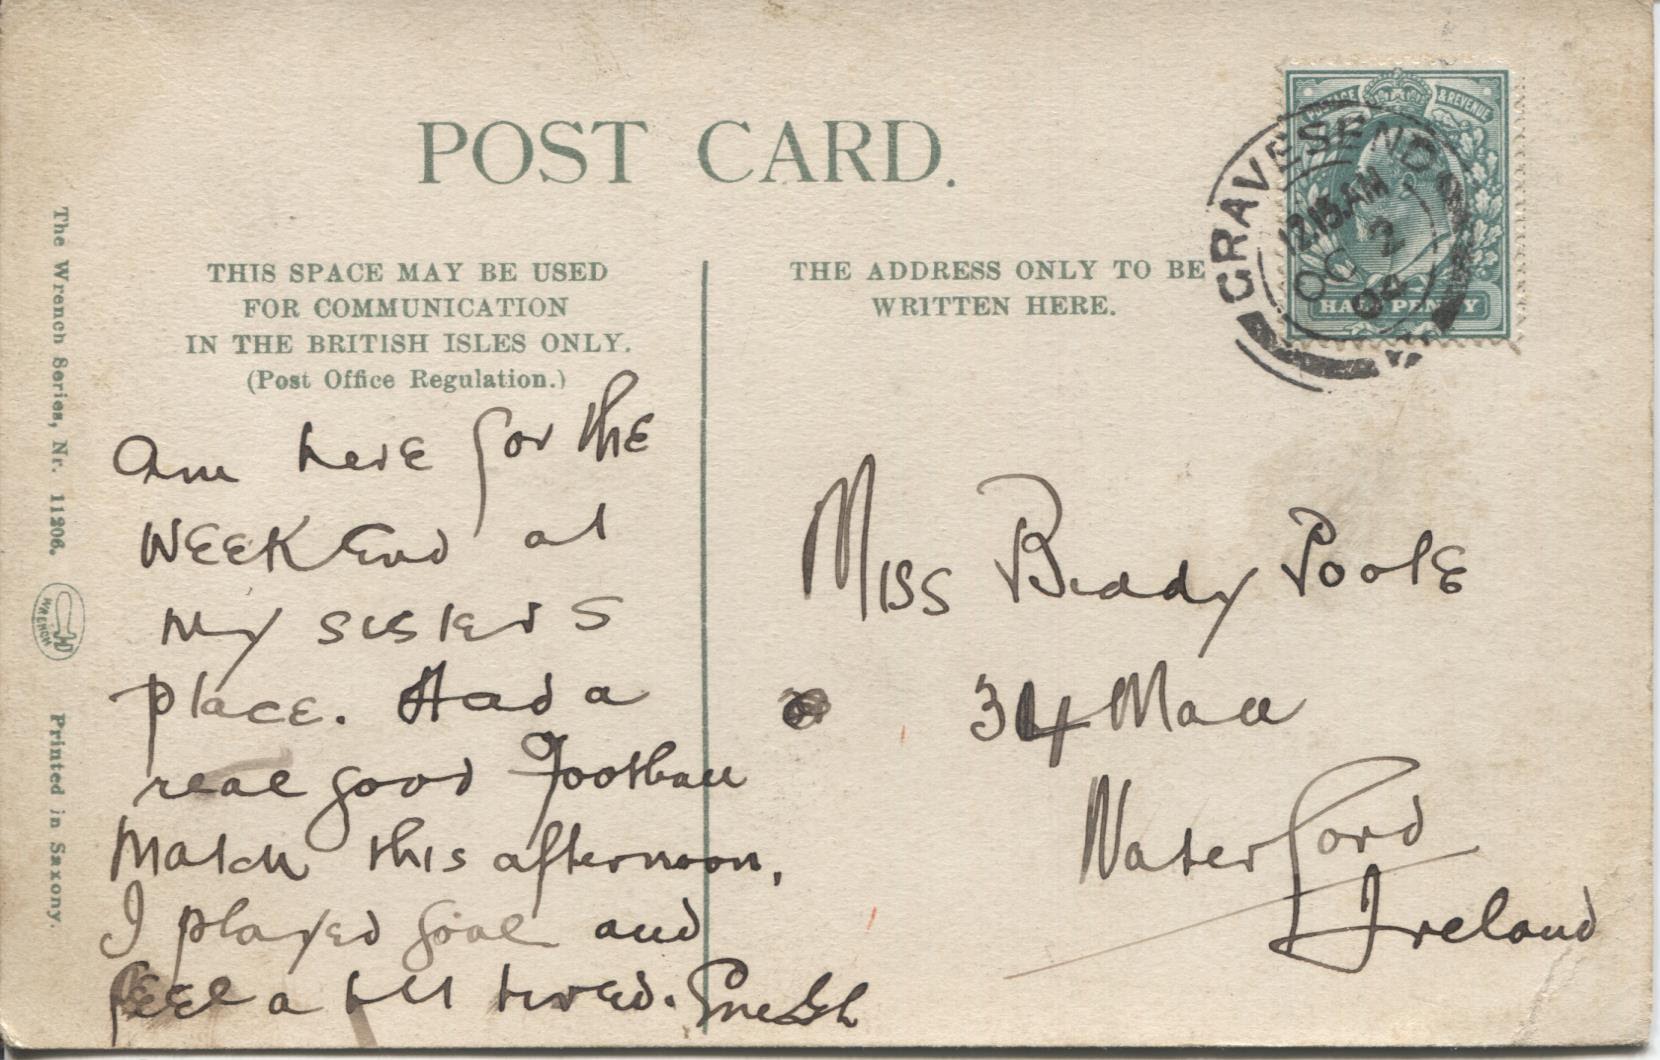 POST CARD.
THIS SPACE MAY BE USED
FOR COMMUNICATION
IN THE BRITISH ISLES ONLY.
(Post Office Regulation.)
THE ADDRESS ONLY TO BE
WRITTEN HERE.
POSTAGE & REVENUE
HALFPENNY
GRAVESEND
12.15.AM
OC 2
04
The Wrench Series, Nr. 11206.
WRENCH
Printed in Saxony.
Am here for the
Week End at
my sisters
place. Had a
real good Football
Match this afternoon,
I played goal and
feel a bit tired.
Miss Biddy Poole
34 Mall
Waterford
Ireland